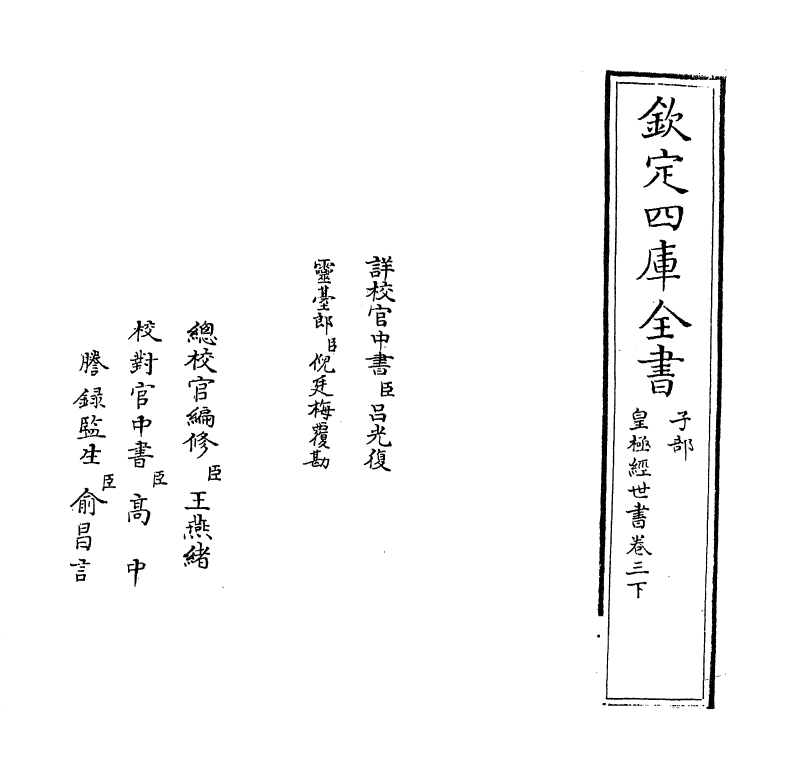 欽定四庫全書
子部
皇極經世書卷三下
詳校官中書臣呂光復
靈臺郎臣倪廷梅覆勘
總校官編修臣王燕緒
校對官中書臣高中
謄錄監生臣俞昌言